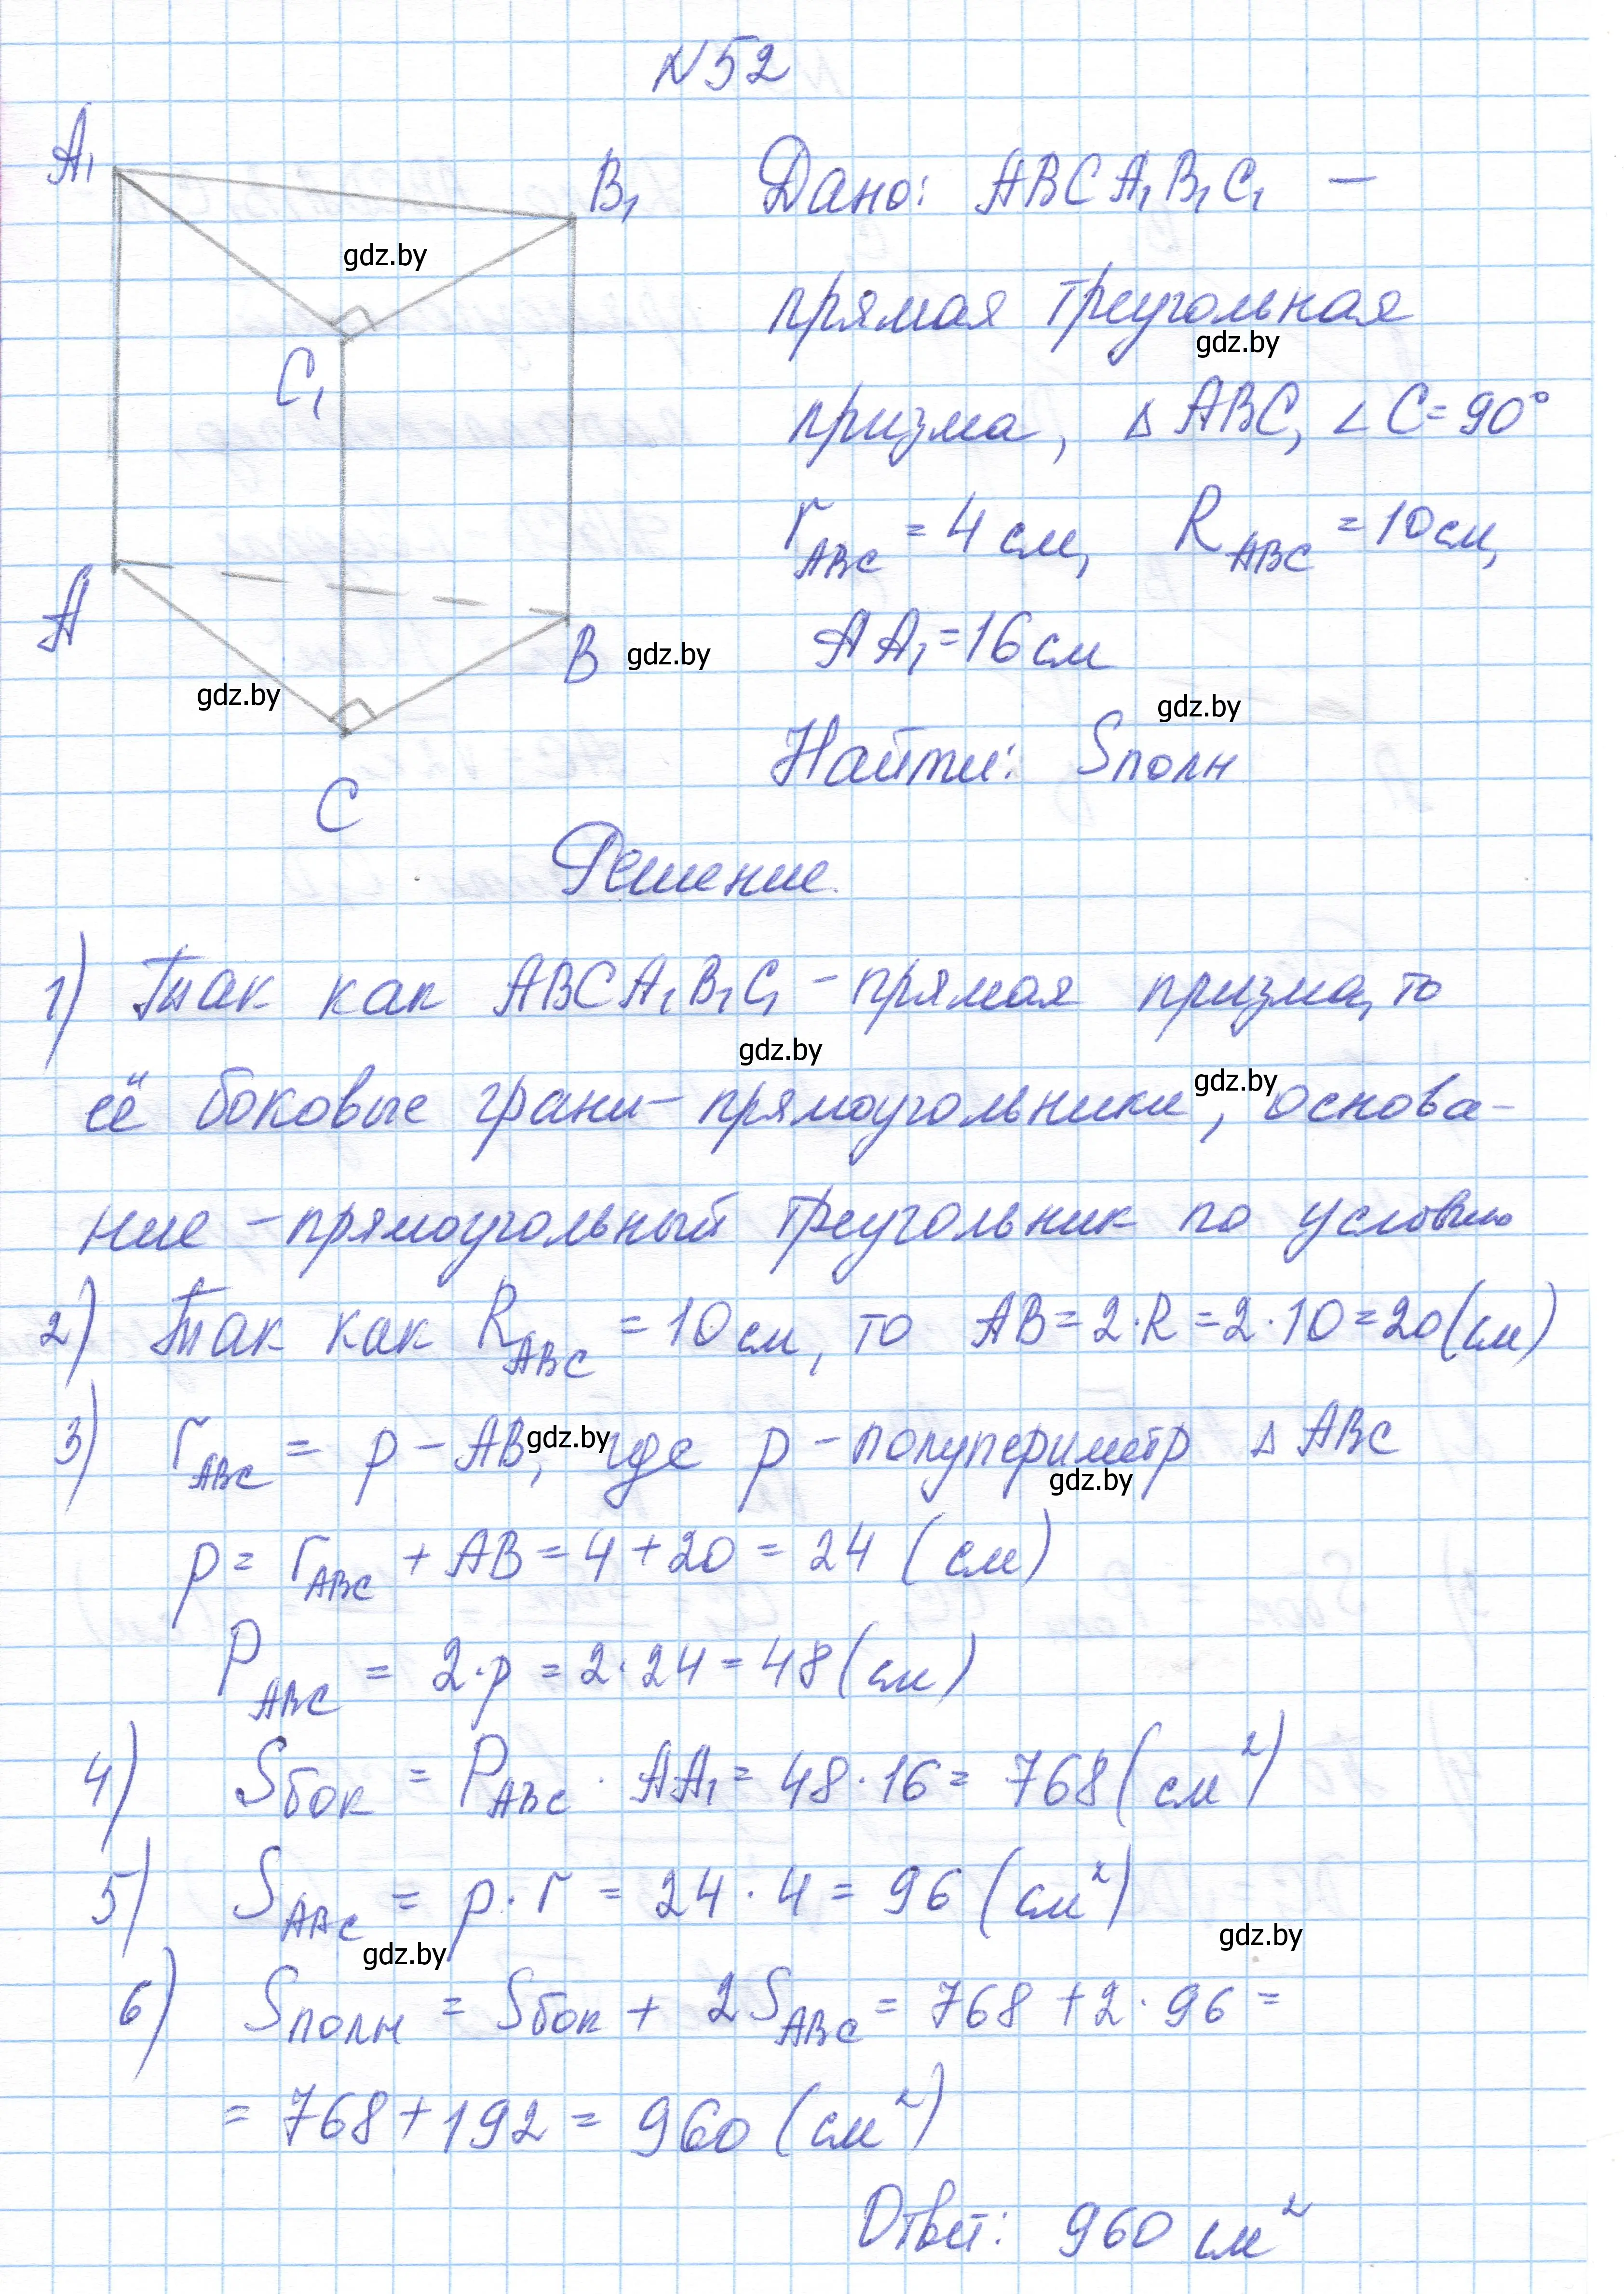 N 52
A₁
B₁
gdz.by
C₁
A
B
gdz.by
gdz.by
C
Дано: ABCA₁B₁C₁ –
прямая треугольная
gdz.by
призма, △ ABC, ∠ C = 90°
r_ABC = 4 см, R_ABC = 10 см,
AA₁ = 16 см
gdz.by
Найти: Sполн
Решение
1) Так как ABCA₁B₁C₁ – прямая призма, то
gdz.by
gdz.by
её боковые грани – прямоугольники, основа-
ние – прямоугольный треугольник по условию
2) Так как R_ABC = 10 см, то AB = 2·R = 2·10 = 20 (см)
3) r_ABC = p – AB, где p – полупериметр △ ABC
gdz.by
gdz.by
p = r_ABC + AB = 4 + 20 = 24 (см)
P_ABC = 2·p = 2·24 = 48 (см)
4) Sбок = P_ABC · AA₁ = 48·16 = 768 (см²)
5) S_ABC = p·r = 24·4 = 96 (см²)
gdz.by
gdz.by
6) Sполн = Sбок + 2S_ABC = 768 + 2·96 =
= 768 + 192 = 960 (см²)
Ответ: 960 см²